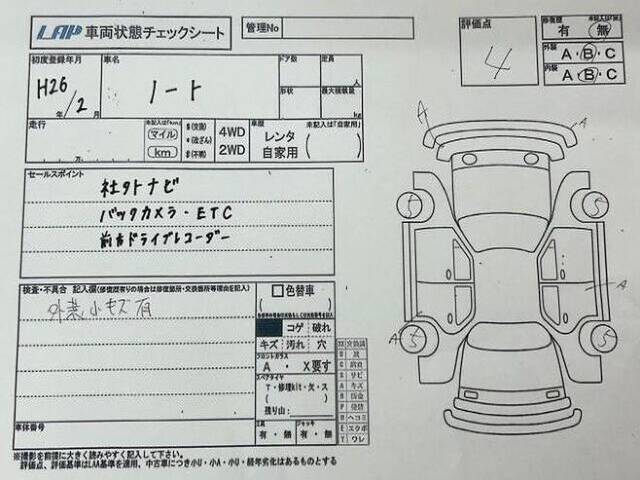 LAP 車両状態チェックシート
管理No
評価点
4
修復歴
有 無
外装
A・B・C
内装
A・B・C
初度登録年月
H26
/2
年 月
車名
ノート
ドア数
定員
人
形状
最大積載量
kg
走行
未記入は「km」
マイル
km
$(交換)
*(改ざん)
#(不明)
4WD
2WD
車歴
未記入は「自家用」
レンタ
自家用
( )
セールスポイント
社外ナビ
バックカメラ・ETC
前方ドライブレコーダー
検査・不具合 記入欄(修復歴有りの場合は修復箇所・交換箇所等理由を記入)
外装小キズ有
色替車
( )
コゲ 破れ
キズ 汚れ 穴
フロントガラス
A ・ X要す
スペアタイヤ
T・修理kit・欠・ス
( )
残り山:
工具
有・無
ジャッキ
有・無
車体番号
A
A
5
5
A
A
5
5
※撮影を前提に大きく読みやすく記入して下さい。
評価点、評価基準はLAA基準を適用、中古車につき小U・小A・小U・経年劣化はあるものとする